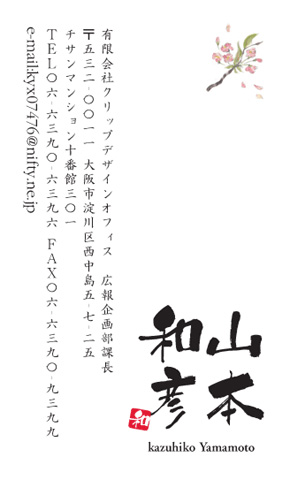 有限会社クリップデザインオフィス　広報企画部課長
〒五三二-〇〇一一　大阪市淀川区西中島五-七-二五
チサンマンション十番館三〇一
TEL〇六-六三九〇-六三九六 FAX〇六-六三九〇-九三九九
e-mail:kyx07476@nifty.ne.jp
山本
和彦
和
kazuhiko Yamamoto